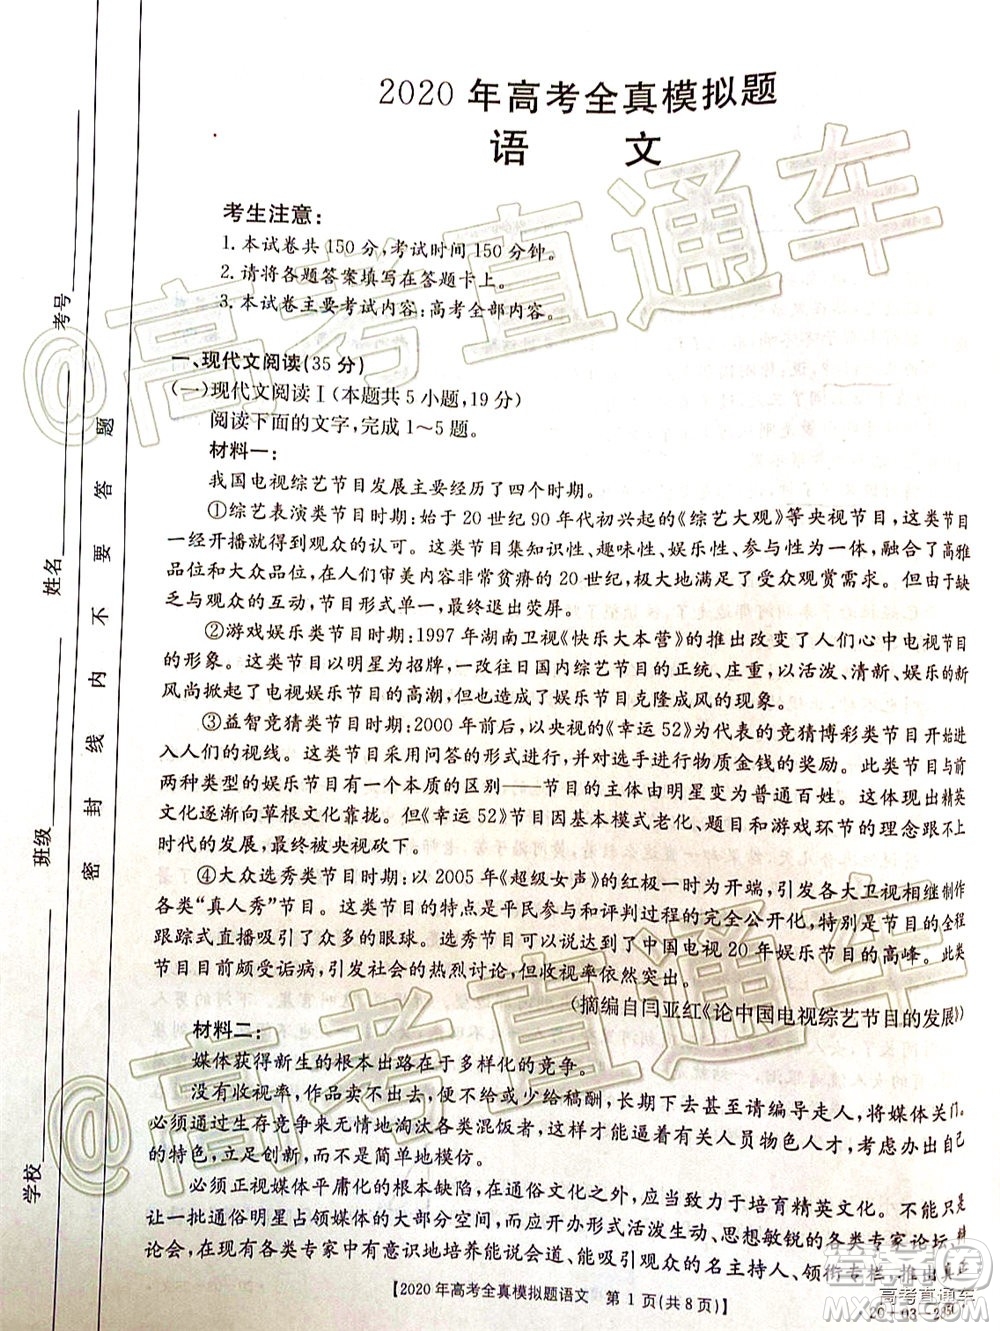 2020 年高考全真模拟题
语 文
考生注意:
1. 本试卷共 150 分,考试时间 150 分钟。
2. 请将各题答案填写在答题卡上。
3. 本试卷主要考试内容:高考全部内容。
一、现代文阅读(35 分)
(一)现代文阅读 I (本题共 5 小题,19 分)
阅读下面的文字,完成 1～5 题。
材料一:
我国电视综艺节目发展主要经历了四个时期。
①综艺表演类节目时期:始于 20 世纪 90 年代初兴起的《综艺大观》等央视节目,这类节目
一经开播就得到观众的认可。这类节目集知识性、趣味性、娱乐性、参与性为一体,融合了高雅
品位和大众品位,在人们审美内容非常贫瘠的 20 世纪,极大地满足了受众观赏需求。但由于缺
乏与观众的互动,节目形式单一,最终退出荧屏。
②游戏娱乐类节目时期:1997 年湖南卫视《快乐大本营》的推出改变了人们心中电视节目
的形象。这类节目以明星为招牌,一改往日国内综艺节目的正统、庄重,以活泼、清新、娱乐的新
风尚掀起了电视娱乐节目的高潮,也出现了娱乐节目克隆成风的现象。
③益智竞猜类节目时期:2000 年前后,以央视的《幸运 52》为代表的竞猜博彩类节目开始进
入人们的视线。这类节目采用问答的形式进行,并对选手进行物质金钱的奖励。此类节目与前
两种类型的娱乐节目有一个本质的区别——节目的主体由明星变为普通百姓。这体现出精英
文化逐渐向草根文化靠拢。但《幸运 52》节目因基本模式老化、题目和游戏环节的理念跟不上
时代的发展,最终被央视砍下。
④大众选秀类节目时期:以 2005 年《超级女声》的红极一时为开端,引发各大卫视相继制作
各类“真人秀”节目。这类节目的特点是平民参与和评判过程的完全公开化,海选加淘汰的全程
跟踪式直播吸引了众多的眼球。选秀节目可以说达到了中国电视 20 年娱乐节目的高峰。此类
节目颇受诟病,引发社会的热烈讨论,但收视率依然突出。
(摘编自闫亚红《论中国电视综艺节目的发展》)
材料二:
媒体获得新生的根本出路在于多样化的竞争。
没有收视率,作品卖不出去,就少给稿酬,长期下去就请编导走人,将媒体关门。
必须通过生存竞争来无情地淘汰各类混饭者,这样才能敦促有关人员物色人才,考虑自己
的特色,立足创新,而不是简单地模仿。
必须正视媒体平庸化的根本缺陷,在通俗文化之外,应当致力于培育精英文化。不能只是
让一批通俗明星占领媒体的大部分空间,而应开办形式活泼生动、思想敏锐的各类专家论坛、
论会,在现有各类专家中有意识地培养能说会道、能吸引观众的名主持人、领衔专家,推出真正
【2020 年高考全真模拟题语文 第 1 页(共 8 页)】
学校
班级
姓名
考号
密 封 线 内 不 要 答 题
@高考直通车
@高考直通车
高考直通车